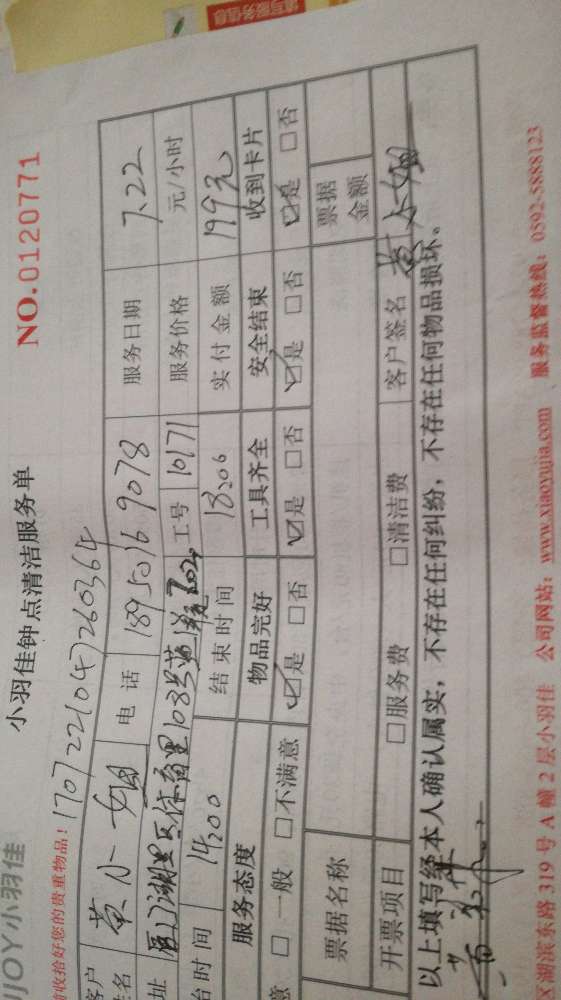 填写服务信息
IJOY小羽佳
小羽佳钟点清洁服务单
NO.0120771
收拾好您的贵重物品！170722104726036
客户 黄小姐 电话 189 5016 9078 服务日期 7.22
址 湖里区体育里108号 工号 10171 服务价格 元/小时
台时间 14:00 结束时间 18:00 实付金额 199元
服务态度 物品完好 工具齐全 安全结束 收到卡片
意 □一般 □不满意 ☑是 □否 ☑是 □否 ☑是 □否 ☑是 □否
票据名称 票据金额
开票项目 □服务费 □清洁费 客户签名 黄小姐
以上填写经本人确认属实，不存在任何纠纷，不存在任何物品损坏。
区湖滨东路 319 号 A 幢 2 层小羽佳 公司网站：www.xiaoyujia.com 服务监督热线：0592-5888123